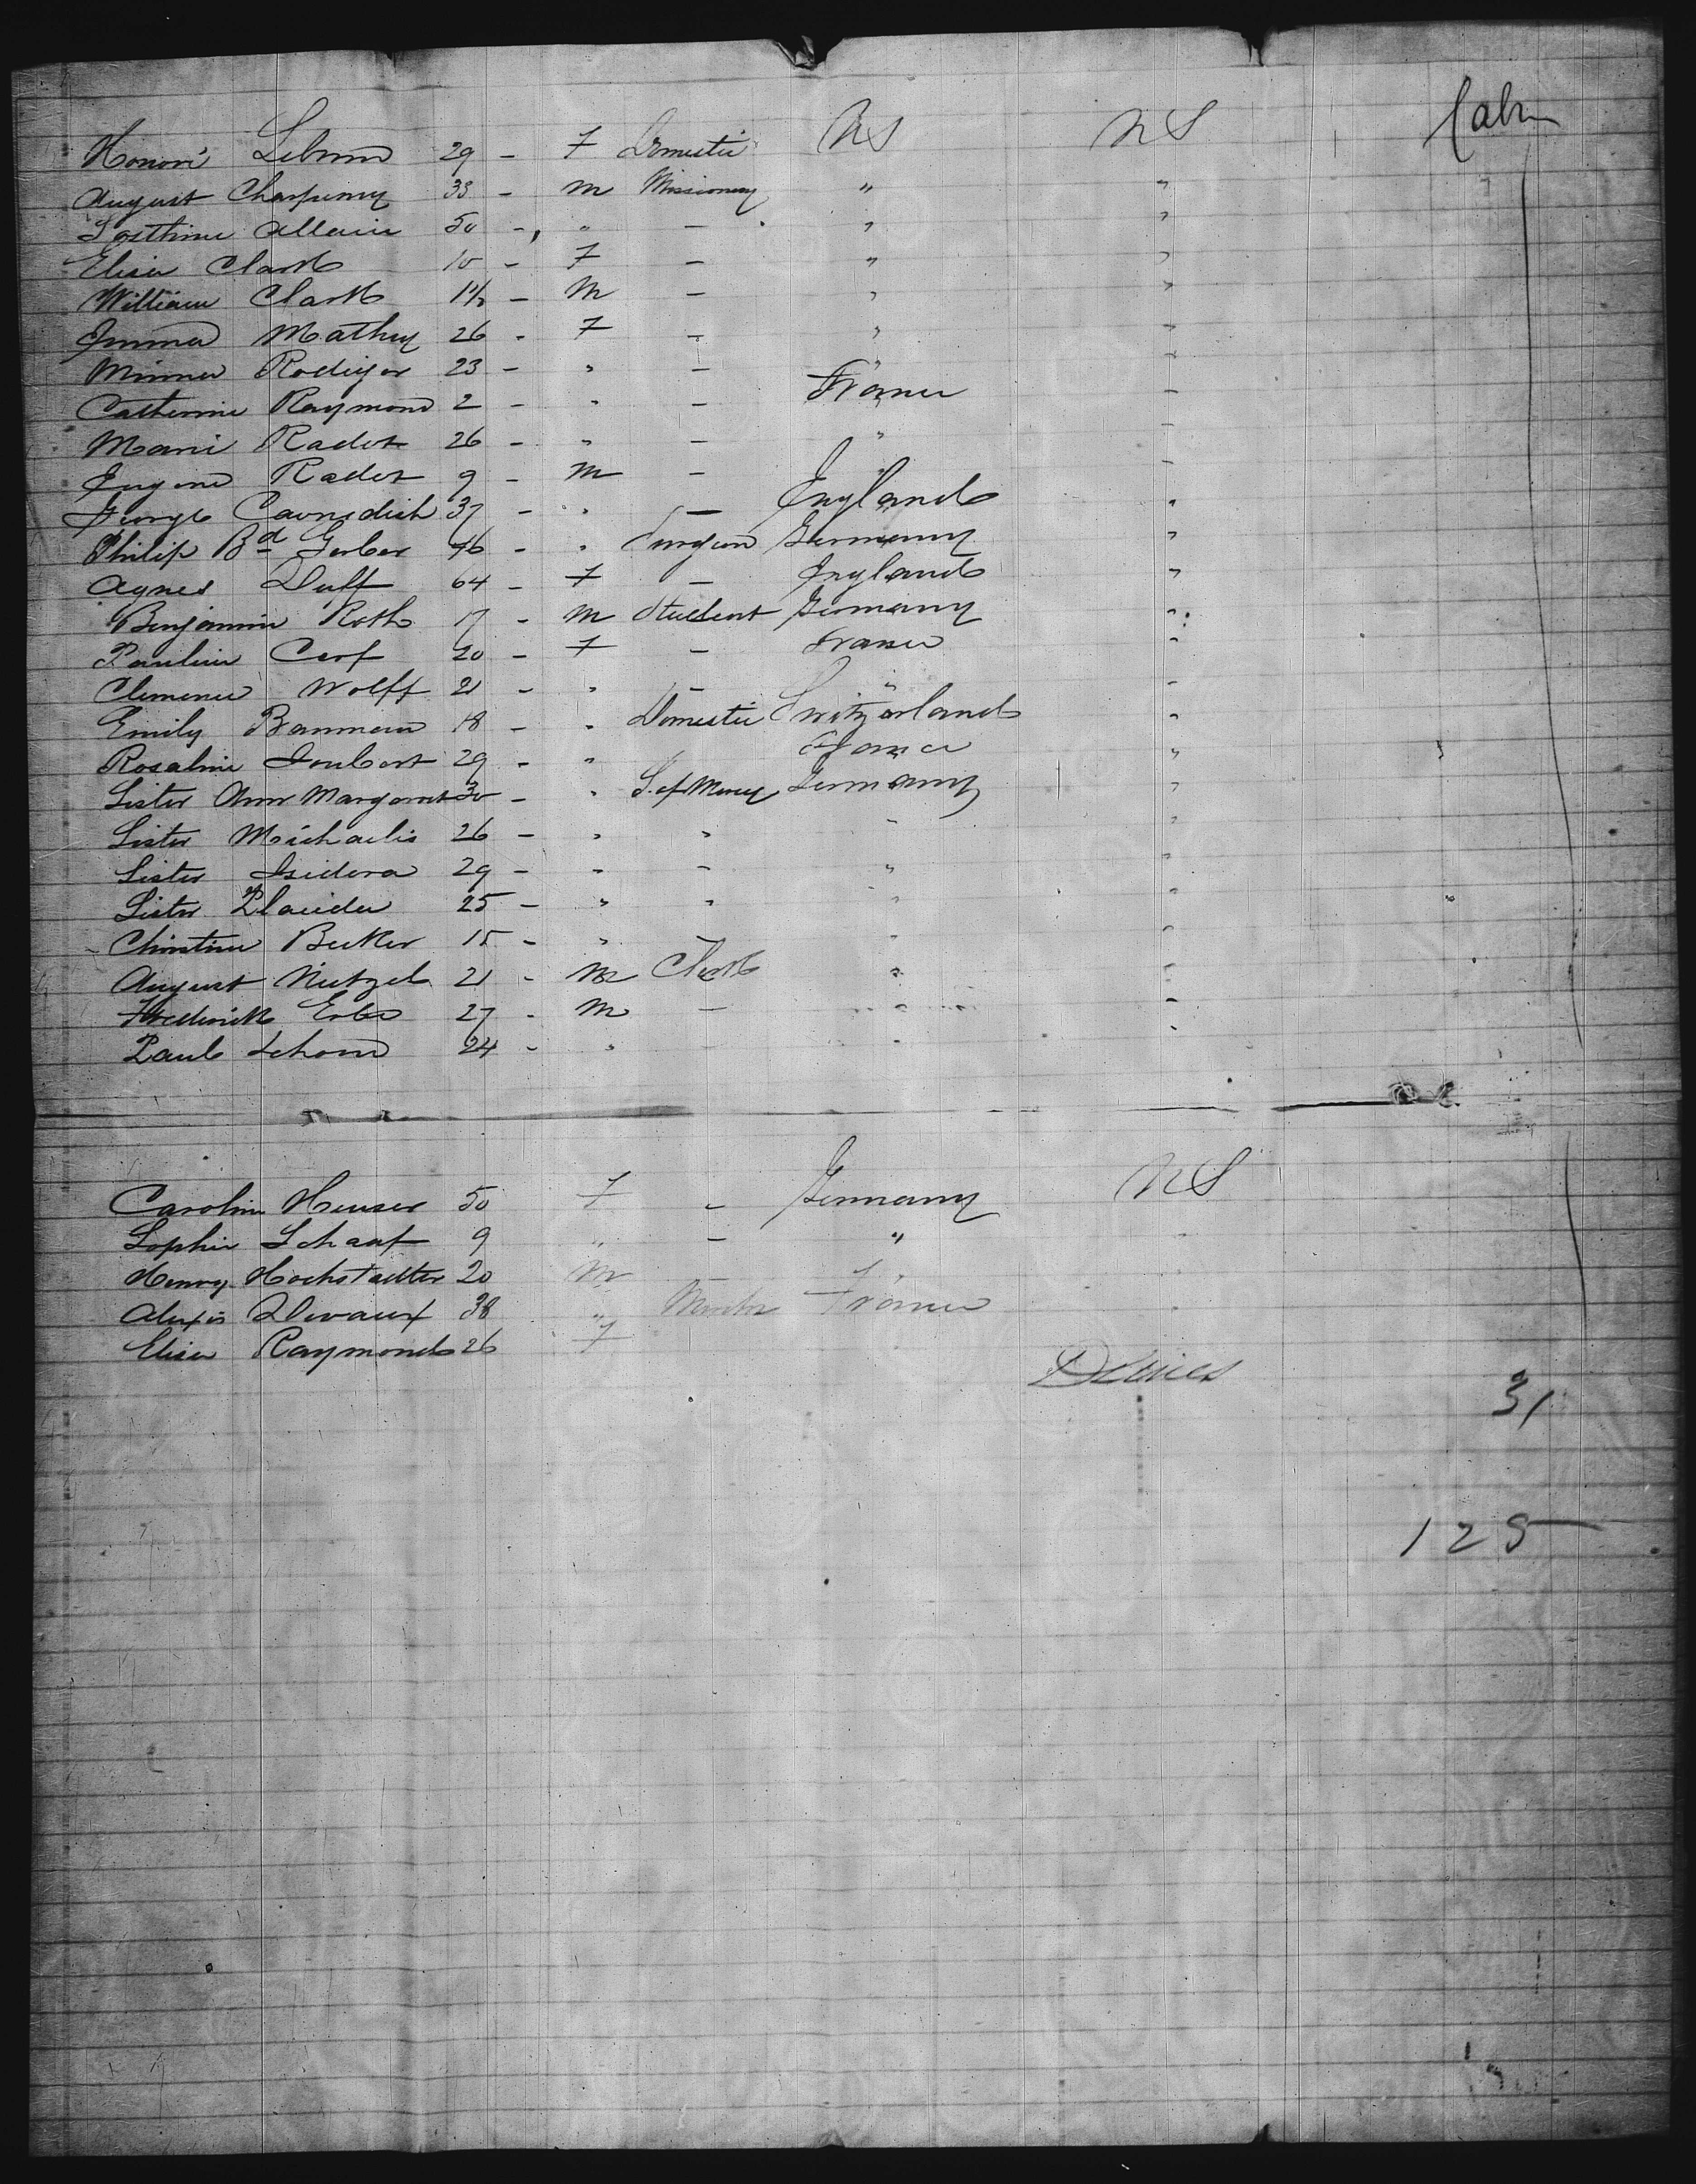 Honoré Lebrun 29 - F Domestic US US Cabin
August Charpeney 33 - M Missionary " "
Allain 50 - " - " "
Elisa Clark 10 - F - " "
William Clark 1 1/2 - M - " "
Emma Mathey 26 - F - " "
Minna Rodiger 23 - " - " "
Catherine Raymond 2 - " - France "
Marie Rader 26 - " - " "
Eugene Rader 9 - M - " "
George Cavnedish 37 - " - England "
Philip Bd Gerber 46 - " Surgeon Germany "
Agnes Duff 64 - F - England "
Benjamin Roth 17 - M Student Germany "
Pauline Cerf 20 - F - France "
Clemence Wolff 21 - " - " "
Emily Banmann 18 - " Domestic Switzerland "
Rosaline Joubert 29 - " France "
Sister Ann Margaret 30 - " S. of Mercy Germany "
Sister Michaelis 26 - " " " "
Sister Isidora 29 - " " " "
Sister Placida 25 - " " " "
Christine Becker 15 - " - " "
August Nietzel 21 - M Clerk " "
Frederick Erbs 27 - M - " "
Paul Schom 24 - " " "
Caroline Heuser 50 F - Germany US
Sophie Schaaf 9 " - " "
Henry Hochstadter 20 M "
Alexis Devaux 38 " France "
Elisa Raymond 26 F
31
125